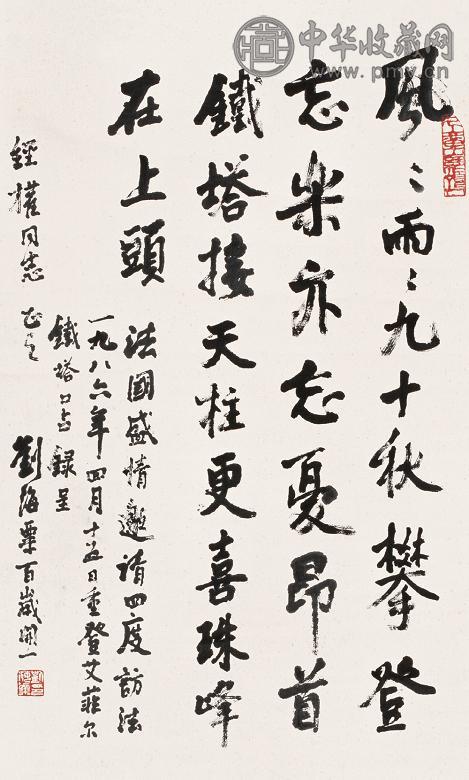 中华收藏网
www.pmyv.cn
風〻雨〻九十秋攀登
忘樂亦忘憂昂首
鐵塔接天柱更喜珠峰
在上頭
法國盛情邀请四度訪法
一九八六年四月十五日重登艾菲尔
鐵塔口占録呈
經權同志正之
劉海粟百歲開一